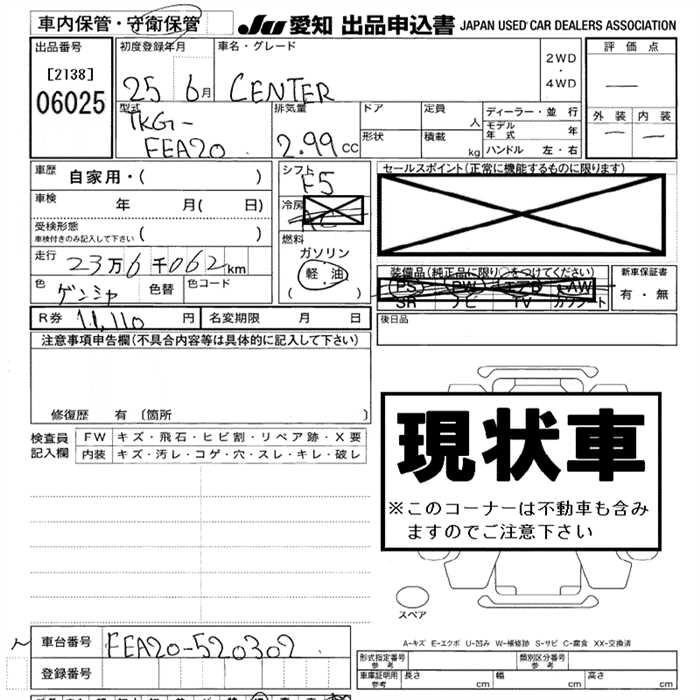 車内保管・守衛保管
JU 愛知 出品申込書 JAPAN USED CAR DEALERS ASSOCIATION
出品番号 初度登録年月 車名・グレード 2WD・4WD 評価点
[2138]
06025 25 6月 CENTER —
型式 排気量 ドア 定員 人 ディーラー・並行 外装 内装
TKG- 形状 積載 kg モデル年式 年 — —
FEA20 2.99cc ハンドル 左・右
車歴 自家用・( ) シフト F5 セールスポイント(正常に機能するものに限ります)
車検 年 月( 日) 冷房 AC
受検形態
車検付きのみ記入して下さい ( ) 燃料 ガソリン
走行 23万6千062km 軽油 ( ・ )
装備品(純正品に限り○をつけてください) 新車保証書
(PS) (PW) エアB AW 有・無
SR ナビ TV カワシート
色 ゲンシャ 色替 色コード
R券 11,110円 名変期限 月 日 後日品
注意事項申告欄(不具合内容等は具体的に記入して下さい)
修復歴 有 〔箇所 〕
現状車
※このコーナーは不動車も含み
ますのでご注意下さい
検査員 FW キズ・飛石・ヒビ割・リペア跡・X要
記入欄 内装 キズ・汚レ・コゲ・穴・スレ・キレ・破レ
スペア
車台番号 FEA20-520302
A-キズ E-エクボ U-凹み W-補修跡 S-サビ C-腐食 XX-交換済
登録番号
形式指定番号 参考 類別区分番号 参考
車庫証明用 参考 長さ cm 幅 cm 高さ cm